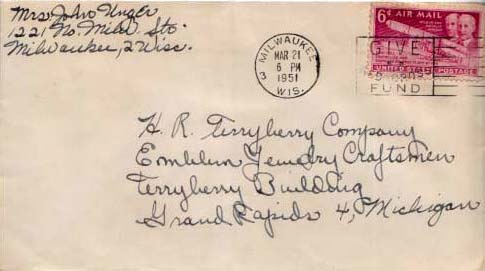 Mrs. John Unger
1221 No. Milw. Sto.
Milwaukee, 2 Wisc.
MILWAUKEE
3
MAR 21
6 PM
1951
WIS.
6¢ AIR MAIL
UNITED STATES POSTAGE
GIVE
FUND
H. R. Terryberry Company
Emblem Jewelry Craftsmen
Terryberry Building
Grand Rapids 4, Michigan